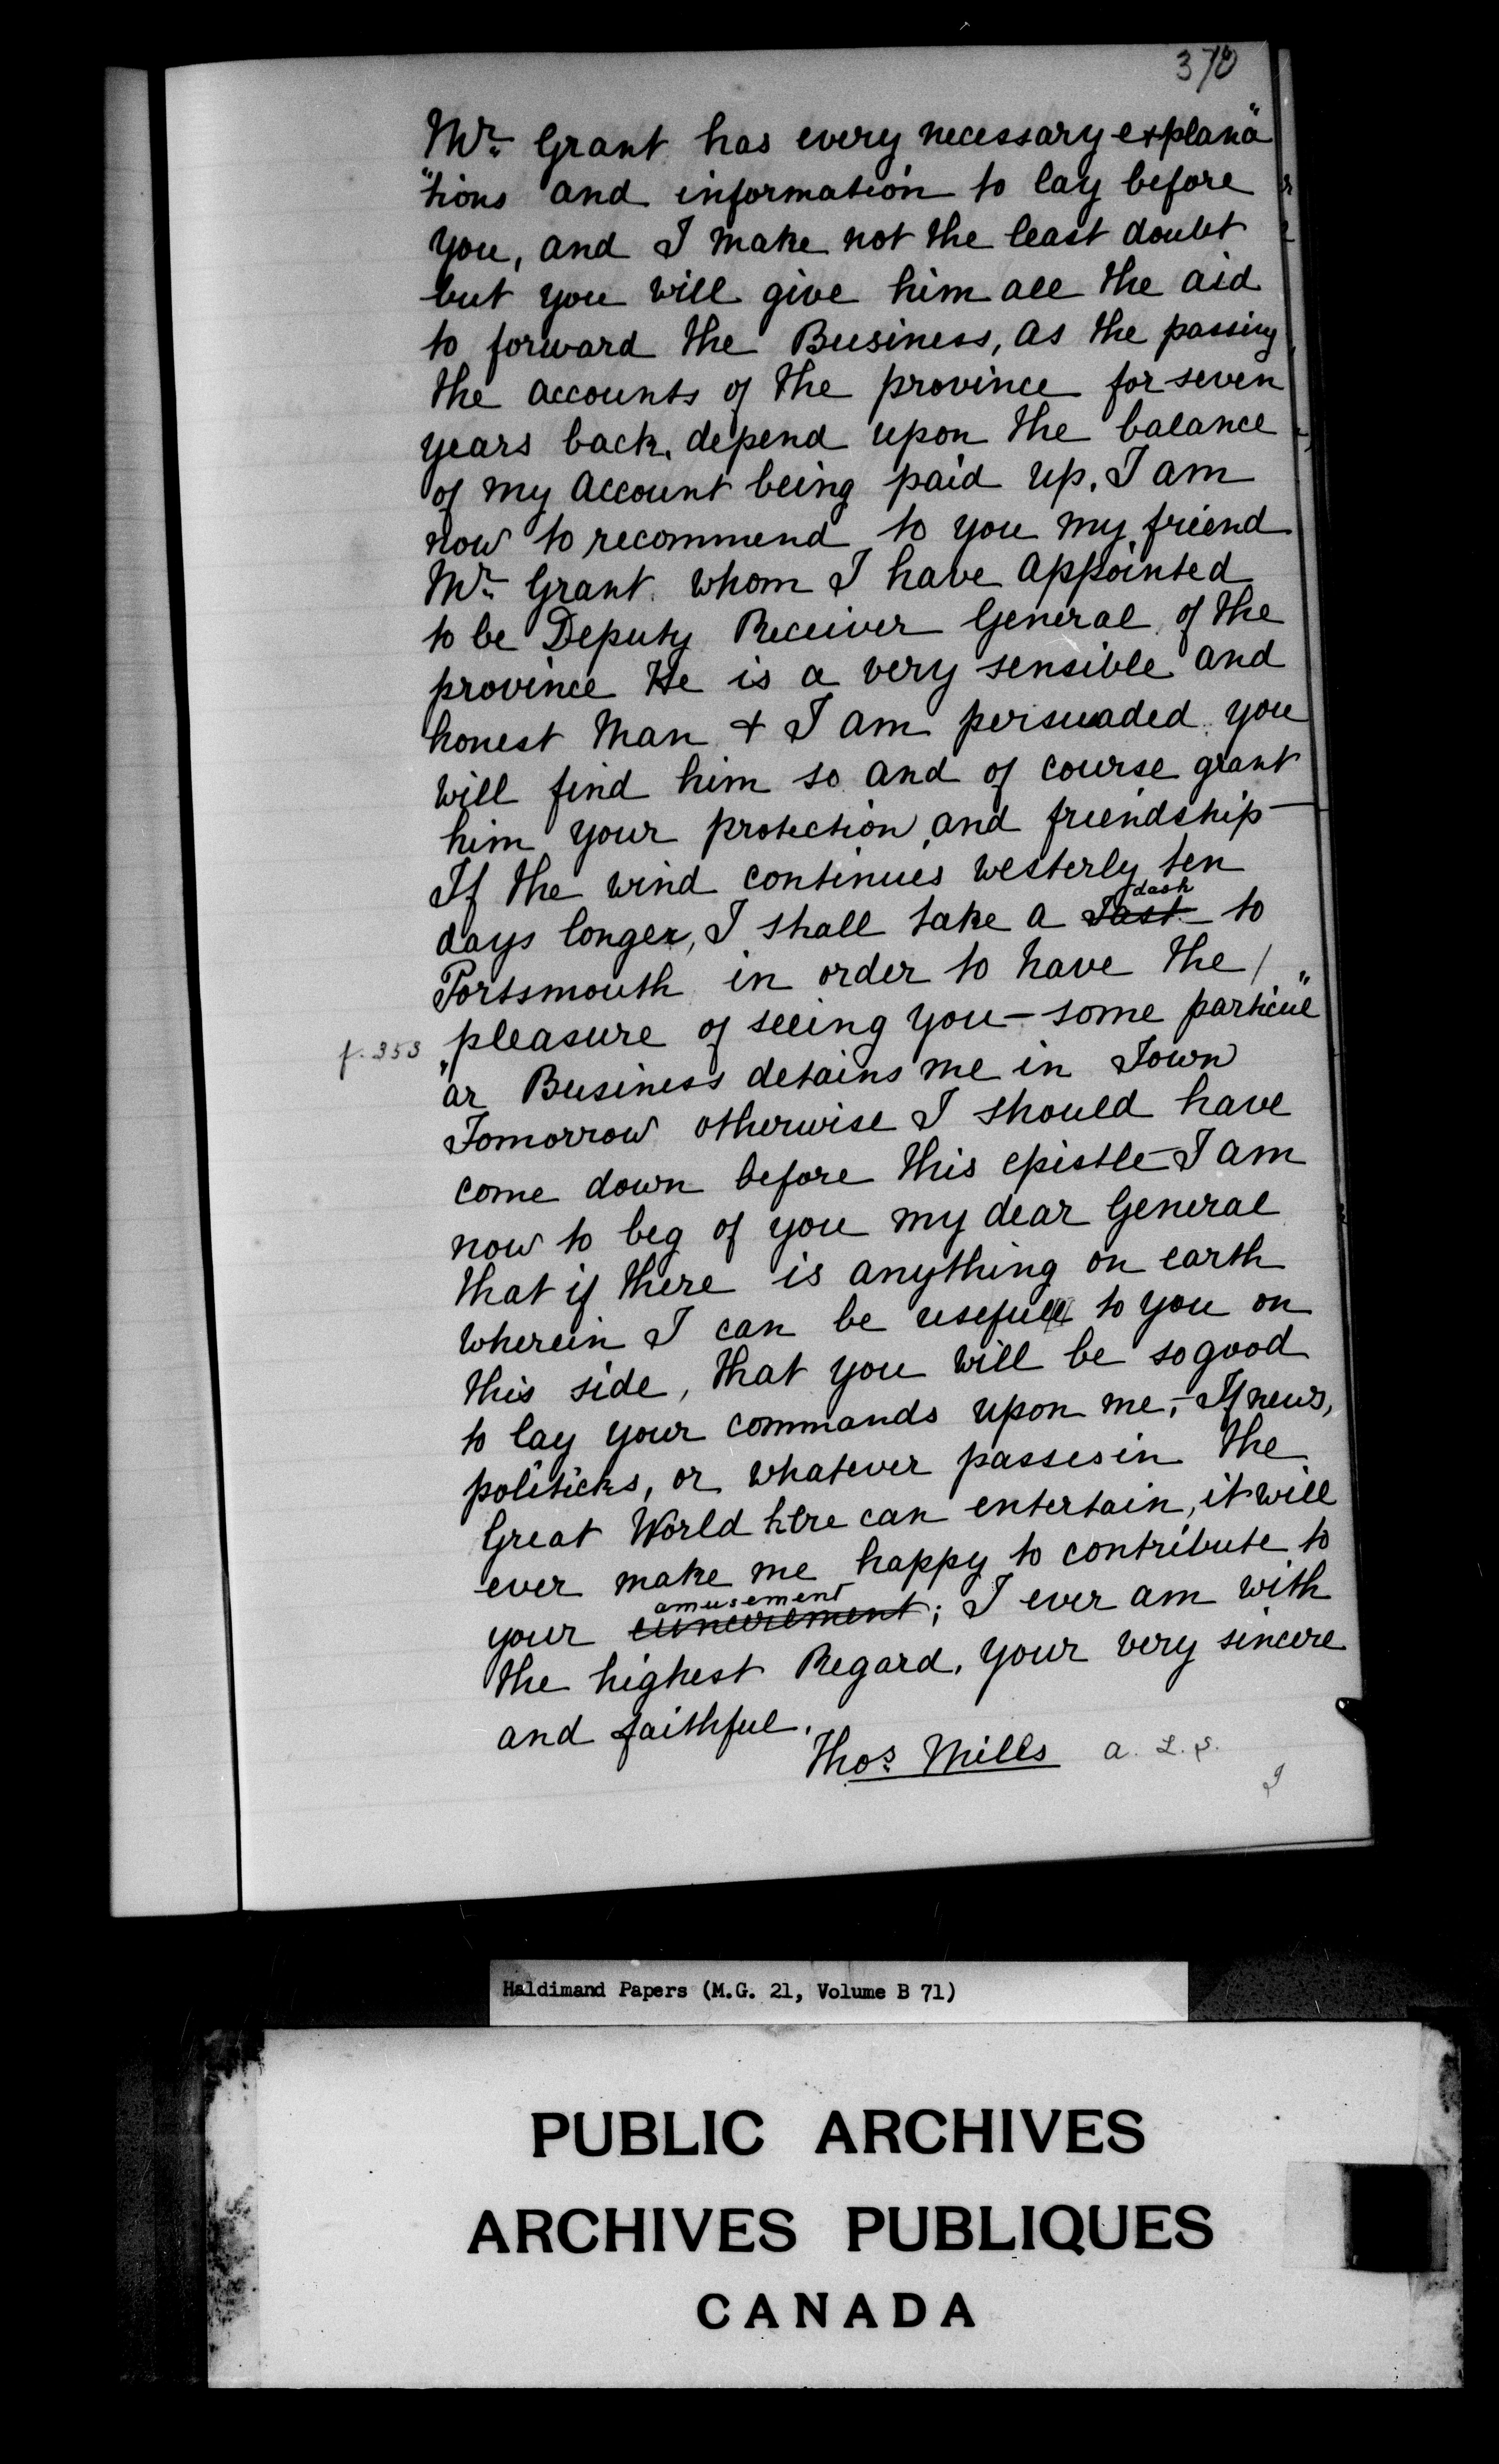 370
Mr. Grant has every necessary explana"
"tions and information to lay before
you, and I make not the least doubt
but you will give him all the aid
to forward the Business, as the passing
the accounts of the province for seven
years back, depend upon the balance
of my account being paid up. I am
now to recommend to you my friend
Mr. Grant whom I have appointed
to be Deputy Receiver General of the
province He is a very sensible and
honest Man & I am persuaded you
will find him so and of course grant
him your protection and friendship—
If the wind continues westerly ten
dash
days longer, I shall take a Tast to
Portsmouth in order to have the /
pleasure of seeing you — some particul"
f. 353
"ar Business detains me in Town
Tomorrow otherwise I should have
come down before this epistle — I am
now to beg of you my dear General
that if there is anything on earth
wherein I can be usefull to you on
this side, that you will be so good
to lay your commands upon me; — If news,
politicks, or whatever passes in the
Great World here can entertain, it will
ever make me happy to contribute to
amusement
your ; I ever am with
the highest Regard, your very sincere
and faithful.
Thos. Mills a. L. S.
Haldimand Papers (M.G. 21, Volume B 71)
PUBLIC ARCHIVES
ARCHIVES PUBLIQUES
CANADA